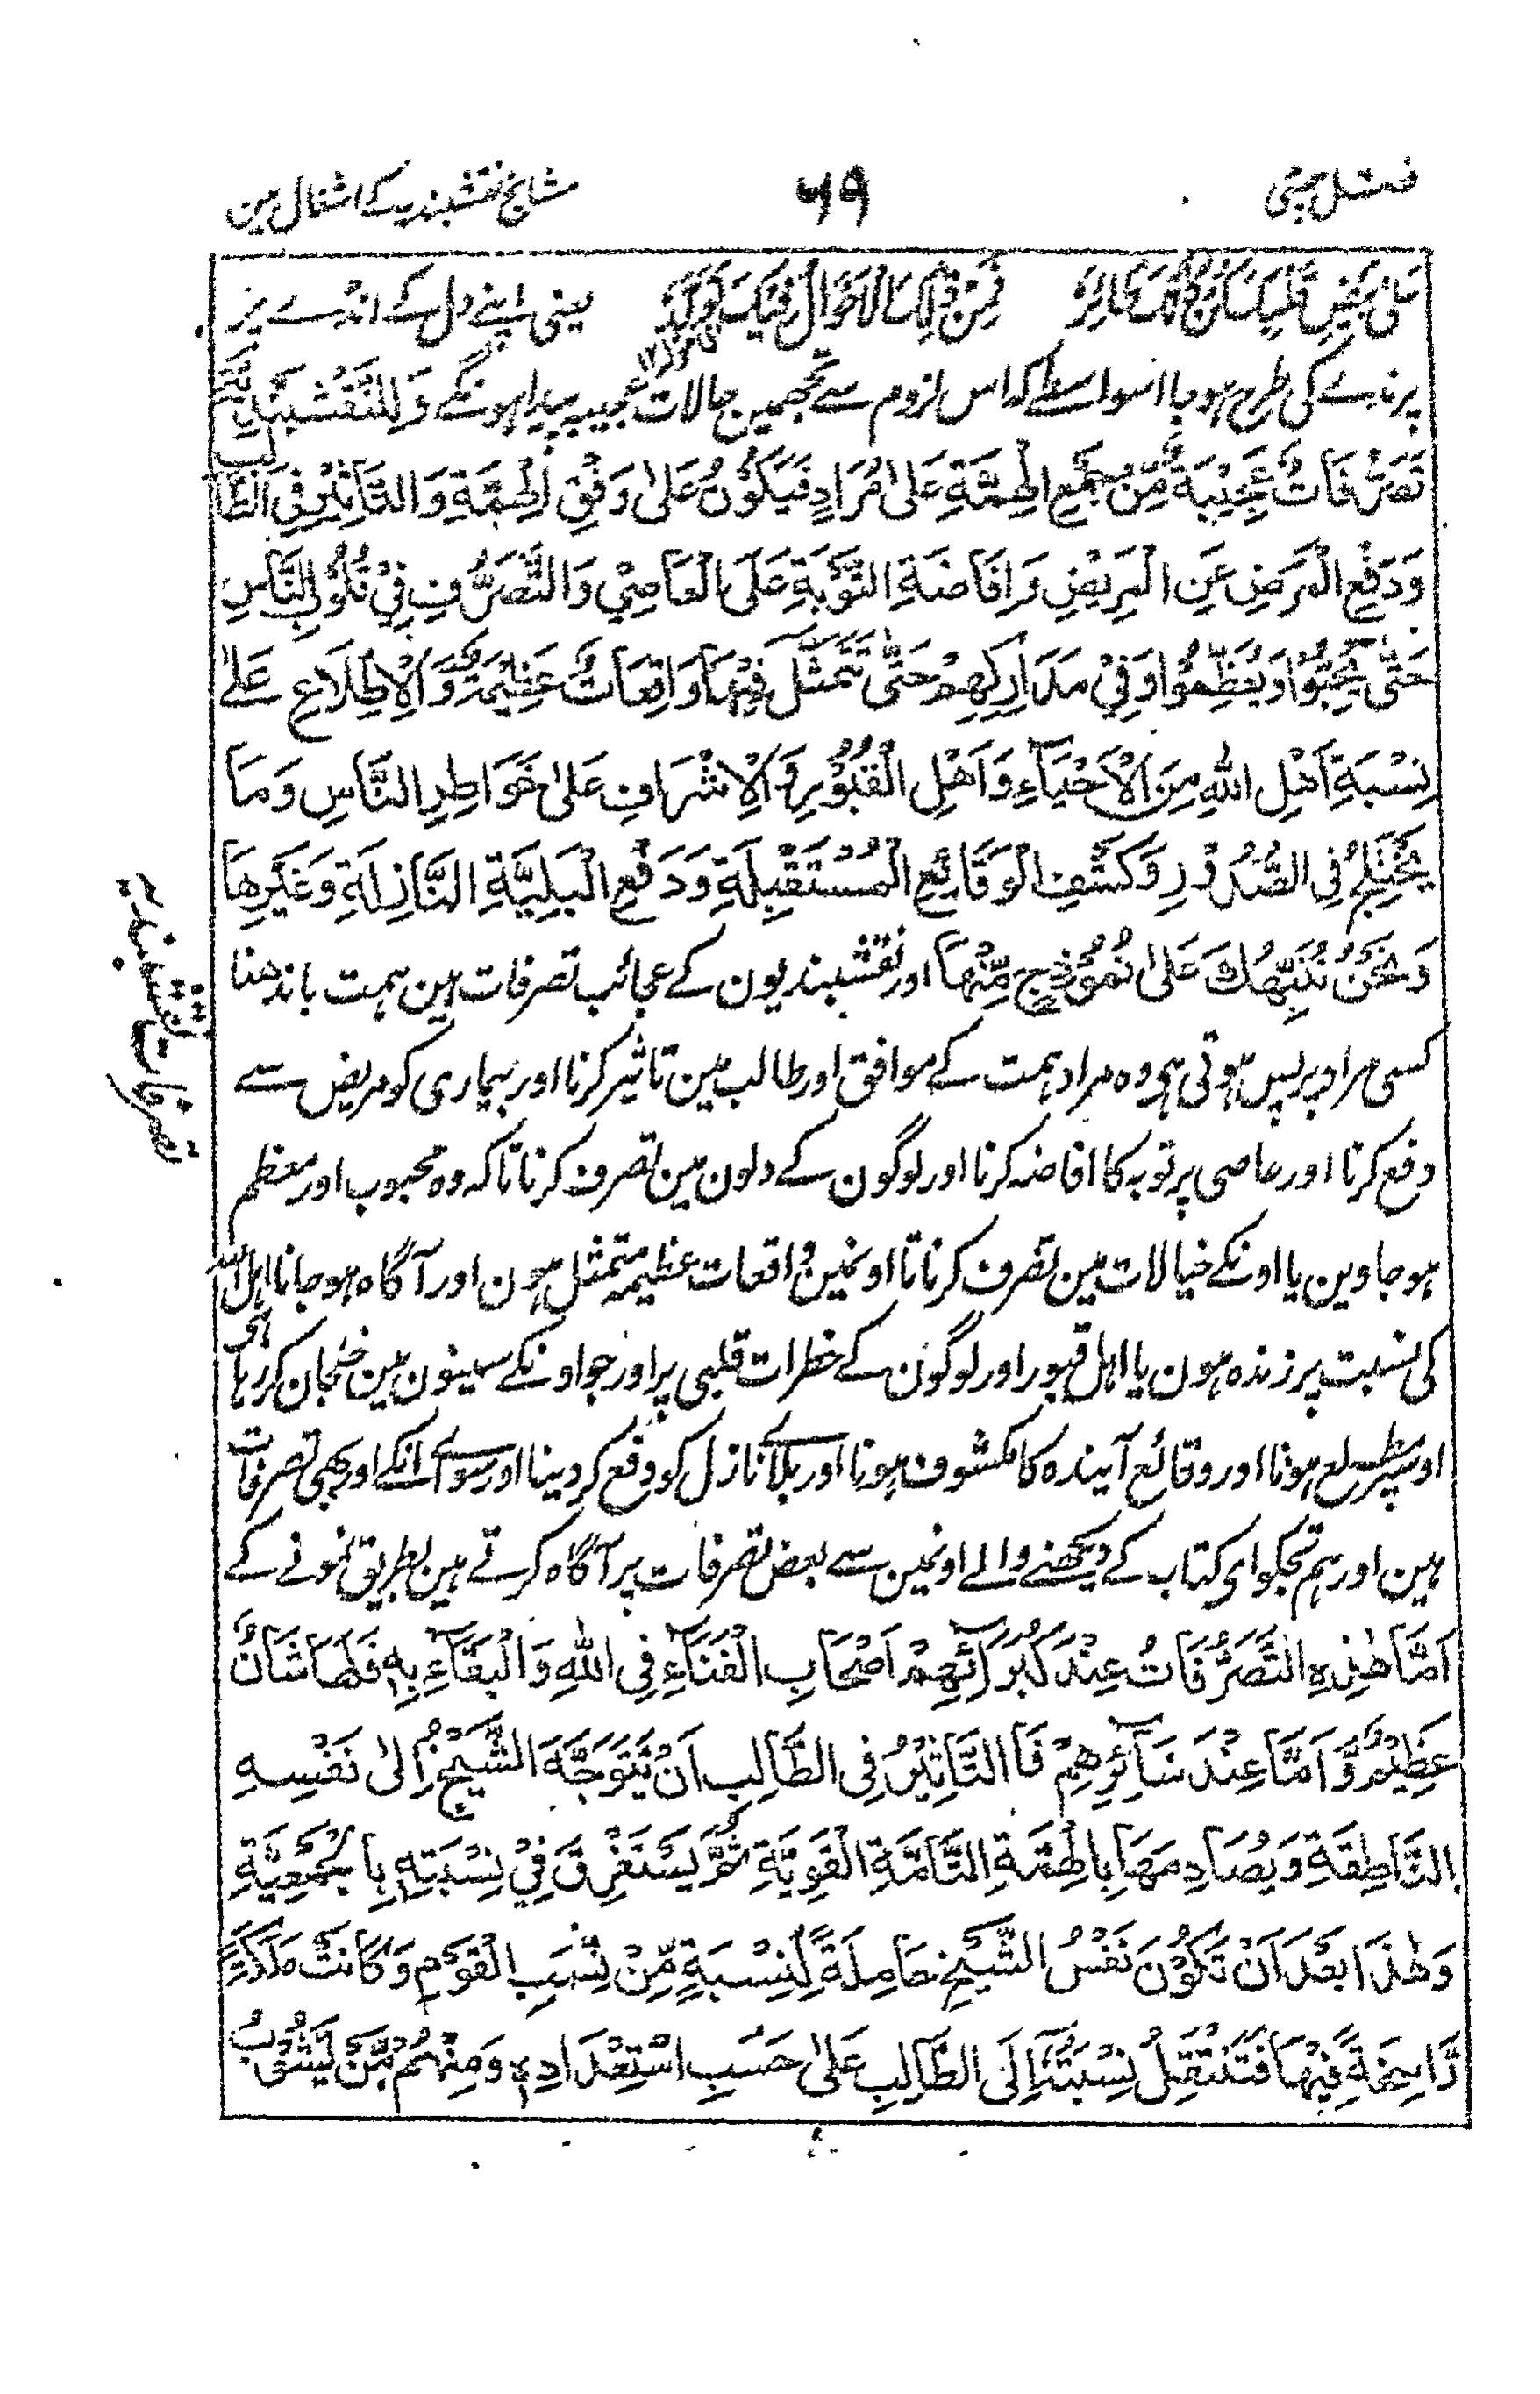 فصل چھٹی ۶۹ مشائخ نقشبندیہ کے اشغال مین
عَلٰى بَيْضِ قَلْبِكَ كُنْ كَاَنَّكَ طَائِرٌ فَمِنْ ذٰلِكَ الْاَحْوَالُ فِيْكَ تَوَلَّدُ یعنی اپنے دل کے انڈے پر
پرندے کی طرح ہو جا اسواسطے کہ اس لزوم سے تجھمین حالات عجیبہ پیدا ہونگے وَلِلنَّقْشْبَنْدِيَّةِ
تَصَرُّفَاتٌ عَجِيْبَةٌ مِّنْ جَمْعِ الْهِمَّةِ عَلٰى مُرَادٍ فَيَكُوْنُ عَلٰى وَفْقِ الْهِمَّةِ وَالتَّاْثِيْرِ فِي الطَّالِبِ
وَدَفْعِ الْمَرَضِ عَنِ الْمَرِيْضِ وَاِفَاضَةِ التَّوْبَةِ عَلَى الْعَاصِيْ وَالتَّصَرُّفِ فِيْ قُلُوْبِ النَّاسِ
حَتّٰى يُحِبُّوْا وَيُعَظِّمُوْا وَفِيْ مَدَارِكِهِمْ حَتّٰى تَتَمَثَّلَ فِيْهَا وَاقِعَاتٌ عَظِيْمَةٌ وَّالْاِطِّلَاعِ عَلٰى
نِسْبَةِ اَهْلِ اللّٰهِ مِنَ الْاَحْيَآءِ وَاَهْلِ الْقُبُوْرِ وَالْاِشْرَافِ عَلٰى خَوَاطِرِ النَّاسِ وَمَا
يَخْتَلِجُ فِي الصُّدُوْرِ وَكَشْفِ الْوَقَائِعِ الْمُسْتَقْبِلَةِ وَدَفْعِ الْبَلِيَّةِ النَّازِلَةِ وَغَيْرِهَا
وَنَحْنُ نُنَبِّهُكَ عَلٰى نُمُوْذَجٍ مِّنْهَا اور نقشبندیون کے عجائب تصرفات ہین ہمت باندھنا
کسی مراد پر پس ہوتی ہی وہ مراد ہمت کے موافق اور طالب مین تاثیر کرنا اور بیماری کو مریض سے
دفع کرنا اور عاصی پر توبہ کا افاضہ کرنا اور لوگون کے دلون مین تصرف کرنا تاکہ وہ محبوب اور معظم
ہو جاوین یا اونکے خیالات مین تصرف کرنا تا اونمین واقعات عظیمہ متمثل ہون اور آگاہ ہو جانا اہل اللہ
کی نسبت پر زندہ ہون یا اہل قبور اور لوگون کے خطرات قلبی پر اور جو اونکے سینون مین خلجان کر رہا ہی
اوسپر مطلع ہونا اور وقائع آیندہ کا مکشوف ہونا اور بلائے نازل کو دفع کر دینا اور سوائے انکے اور بھی تصرفات
ہین اور ہم تجکو ای کتاب کے دیکھنے والے اونمین سے بعض تصرفات پر آگاہ کرتے ہین بطریق نمونے کے
اَمَّا هٰذِهِ التَّصَرُّفَاتُ عِنْدَ كُبَرَآئِهِمْ اَصْحَابِ الْفَنَآءِ فِي اللّٰهِ وَالْبَقَآءِ بِهٖ فَلَهَا شَانٌ
عَظِيْمٌ وَّاَمَّا عِنْدَ سَآئِرِهِمْ فَاالتَّاثِيْرُ فِي الطَّالِبِ اَنْ يَّتَوَجَّهَ الشَّيْخُ اِلٰى نَفْسِهِ
النَّاطِقَةِ وَيُصَادِمَهَا بِالْهِمَّةِ التَّامَّةِ الْقَوِيَّةِ ثُمَّ يَسْتَغْرِقَ فِيْ نِسْبَتِهٖ بِالْجَمْعِيَّةِ
وَهٰذَا بَعْدَ اَنْ تَكُوْنَ نَفْسُ الشَّيْخِ حَامِلَةً لِّنِسْبَةٍ مِّنْ نِّسَبِ الْقَوْمِ وَكَانَتْ مَلَكَةً
رَّاسِخَةً فِيْهَا فَتَنْتَقِلُ نِسْبَتُهٗ اِلَى الطَّالِبِ عَلٰى حَسَبِ اسْتِعْدَادِهٖ وَمِنْهُمْ مَّنْ يَّشُوْبُ
تصرفات نقشبندیہ